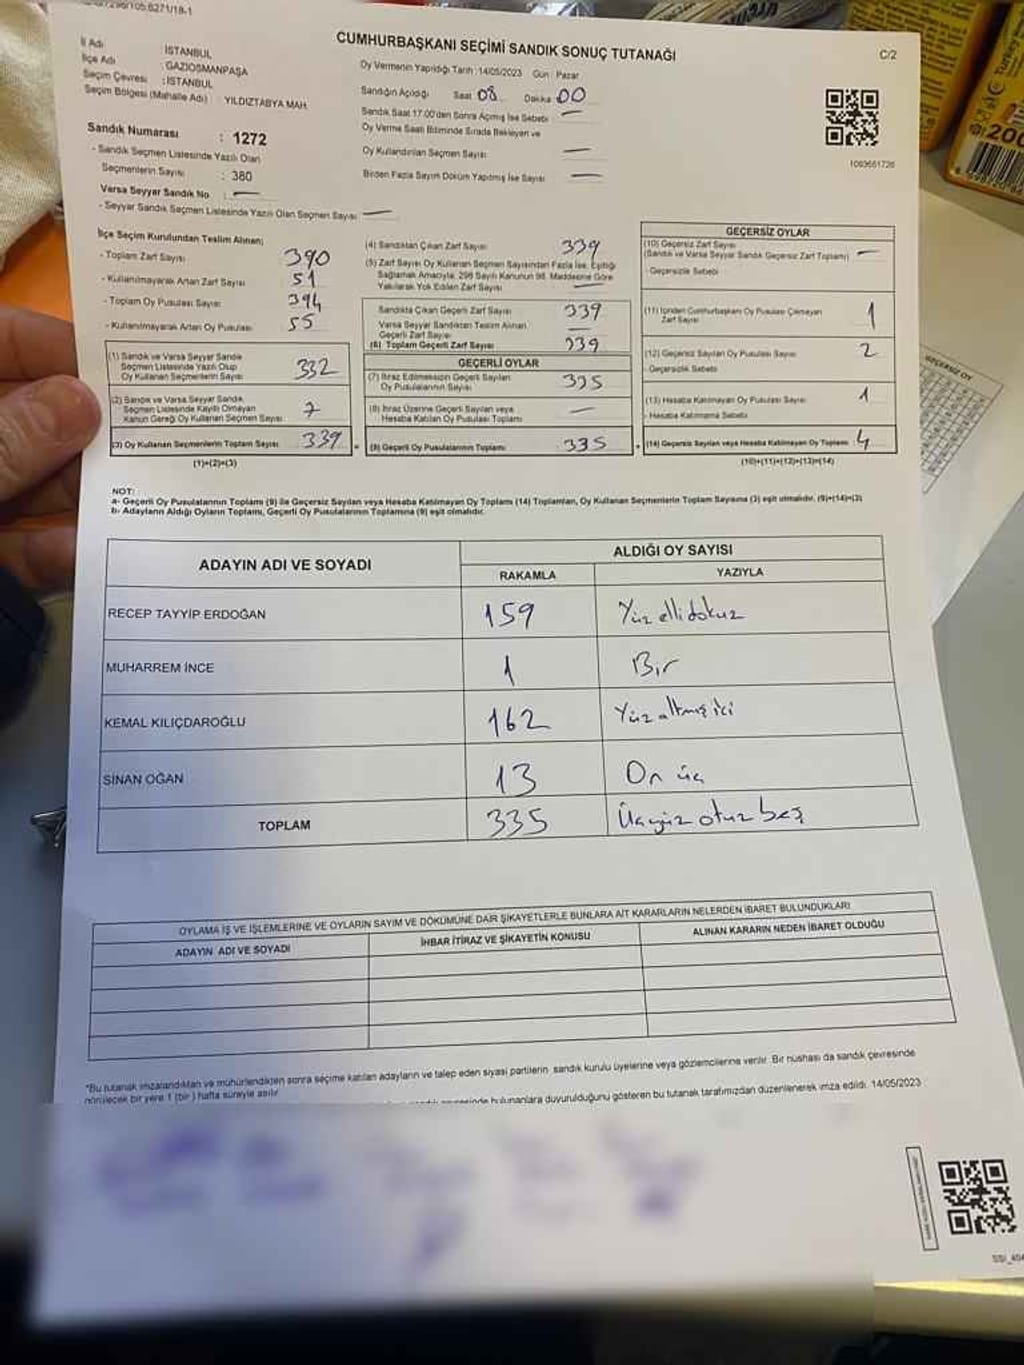 CUMHURBAŞKANI SEÇİMİ SANDIK SONUÇ TUTANAĞI
C/2
İl Adı İSTANBUL
İlçe Adı GAZİOSMANPAŞA
Seçim Çevresi : İSTANBUL
Seçim Bölgesi (Mahalle Adı) YILDIZTABYA MAH.
Sandık Numarası : 1272
- Sandık Seçmen Listesinde Yazılı Olan
Seçmenlerin Sayısı : 380
Varsa Seyyar Sandık No : —
- Seyyar Sandık Seçmen Listesinde Yazılı Olan Seçmen Sayısı —
Oy Vermenin Yapıldığı Tarih : 14/05/2023 Gün : Pazar
Sandığın Açıldığı Saat 08 Dakika 00
Sandık Saat 17:00'den Sonra Açılmış İse Sebebi —
Oy Verme Saati Bitiminde Sırada Bekleyen ve
Oy Kullandırılan Seçmen Sayısı —
Birden Fazla Sayım Döküm Yapılmış İse Sayısı —
1093661726
İlçe Seçim Kurulundan Teslim Alınan;
- Toplam Zarf Sayısı 390
- Kullanılmayarak Artan Zarf Sayısı 51
- Toplam Oy Pusulası Sayısı 394
- Kullanılmayarak Artan Oy Pusulası 55
(1) Sandık ve Varsa Seyyar Sandık
Seçmen Listesinde Yazılı Olup
Oy Kullanan Seçmenlerin Sayısı 332
(2) Sandık ve Varsa Seyyar Sandık
Seçmen Listesinde Kayıtlı Olmayan
Kanun Gereği Oy Kullanan Seçmen Sayısı 7
(3) Oy Kullanan Seçmenlerin Toplam Sayısı 339
(1)+(2)=(3)
(4) Sandıktan Çıkan Zarf Sayısı 339
(5) Zarf Sayısı Oy Kullanan Seçmen Sayısından Fazla İse, Eşitliği
Sağlamak Amacıyla, 298 Sayılı Kanunun 98. Maddesine Göre
Yakılarak Yok Edilen Zarf Sayısı —
Sandıkta Çıkan Geçerli Zarf Sayısı 339
Varsa Seyyar Sandıktan Teslim Alınan
Geçerli Zarf Sayısı —
(6) Toplam Geçerli Zarf Sayısı 339
GEÇERLİ OYLAR
(7) İtiraz Edilmeksizin Geçerli Sayılan
Oy Pusulalarının Sayısı 335
(8) İtiraz Üzerine Geçerli Sayılan veya
Hesaba Katılan Oy Pusulası Toplamı —
(9) Geçerli Oy Pusulalarının Toplamı 335
GEÇERSİZ OYLAR
(10) Geçersiz Zarf Sayısı
(Sandık ve Varsa Seyyar Sandık Geçersiz Zarf Toplamı) —
- Geçersizlik Sebebi
(11) İçinden Cumhurbaşkanı Oy Pusulası Çıkmayan
Zarf Sayısı 1
(12) Geçersiz Sayılan Oy Pusulası Sayısı 2
- Geçersizlik Sebebi
(13) Hesaba Katılmayan Oy Pusulası Sayısı 1
- Hesaba Katılmama Sebebi
(14) Geçersiz Sayılan veya Hesaba Katılmayan Oy Toplamı 4
(10)+(11)+(12)+(13)=(14)
NOT:
a- Geçerli Oy Pusulalarının Toplamı (9) ile Geçersiz Sayılan veya Hesaba Katılmayan Oy Toplamı (14) Toplamları, Oy Kullanan Seçmenlerin Toplam Sayısına (3) eşit olmalıdır. (9)+(14)=(3)
b- Adayların Aldığı Oyların Toplamı, Geçerli Oy Pusulalarının Toplamına (9) eşit olmalıdır.
ADAYIN ADI VE SOYADI ALDIĞI OY SAYISI
RAKAMLA YAZIYLA
RECEP TAYYİP ERDOĞAN 159 Yüz elli dokuz
MUHARREM İNCE 1 Bir
KEMAL KILIÇDAROĞLU 162 Yüz altmış iki
SİNAN OĞAN 13 On üç
TOPLAM 335 Üçyüz otuz beş
OYLAMA İŞ VE İŞLEMLERİNE VE OYLARIN SAYIM VE DÖKÜMÜNE DAİR ŞİKAYETLERLE BUNLARA AİT KARARLARIN NELERDEN İBARET BULUNDUKLARI
ADAYIN ADI VE SOYADI İHBAR İTİRAZ VE ŞİKAYETİN KONUSU ALINAN KARARIN NEDEN İBARET OLDUĞU
*Bu tutanak imzalandıktan ve mühürlendikten sonra seçime katılan adayların ve talep eden siyasi partilerin sandık kurulu üyelerine veya gözlemcilerine verilir. Bir nüshası da sandık çevresinde
görülecek bir yere 1 (bir) hafta süreyle asılır.
bulunanlara duyurulduğunu gösteren bu tutanak tarafımızdan düzenlenerek imza edildi. 14/05/2023